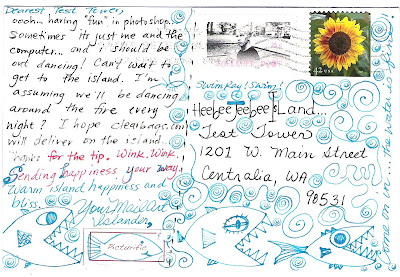 Dearest Test Tower,
oooh... having "fun" in photoshop...
Sometimes its just me and the
computer... and i should be
out dancing! Can't wait to
get to the island. I'm
assuming we'll be dancing
around the fire every
night? I hope clearbags.com
will deliver on the island.
thanks for the tip. Wink. Wink.
Sending happiness your way.
Warm island happiness and
bliss,
Your Mail Art
Islander,
Picturitic
42 USA
Swim Kay! Swim!
HeebeeJeebeeLand...
Test Tower
1201 W. Main Street
Centralia, WA
98531
Come on in... the water's